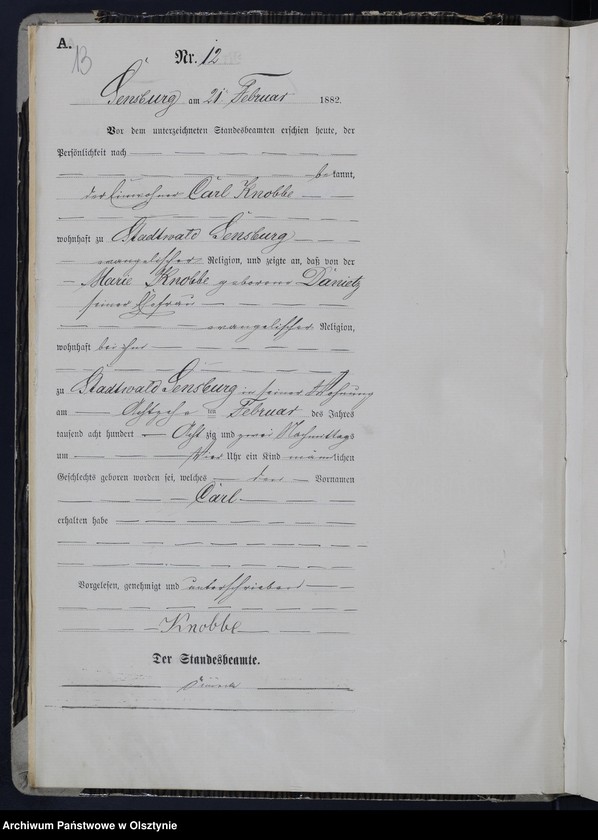 A.
13
Nr. 12
Sensburg am 21 Februar 1882.
Vor dem unterzeichneten Standesbeamten erschien heute, der
Persönlichkeit nach
bekannt,
der Einwohner Carl Knobbe
wohnhaft zu Stadtwald Sensburg
evangelischer Religion, und zeigte an, daß von der
Marie Knobbe geborene Danietz
seiner Ehefrau
evangelischer Religion,
wohnhaft bei ihm
zu Stadtwald Sensburg in seiner Wohnung
am Achtzehn ten Februar des Jahres
tausend acht hundert Acht zig und zwei Nachmittags
um Vier Uhr ein Kind männlichen
Geschlechts geboren worden sei, welches den Vornamen
Carl
erhalten habe
Vorgelesen, genehmigt und unterschrieben
Knobbe
Der Standesbeamte.
Archiwum Państwowe w Olsztynie